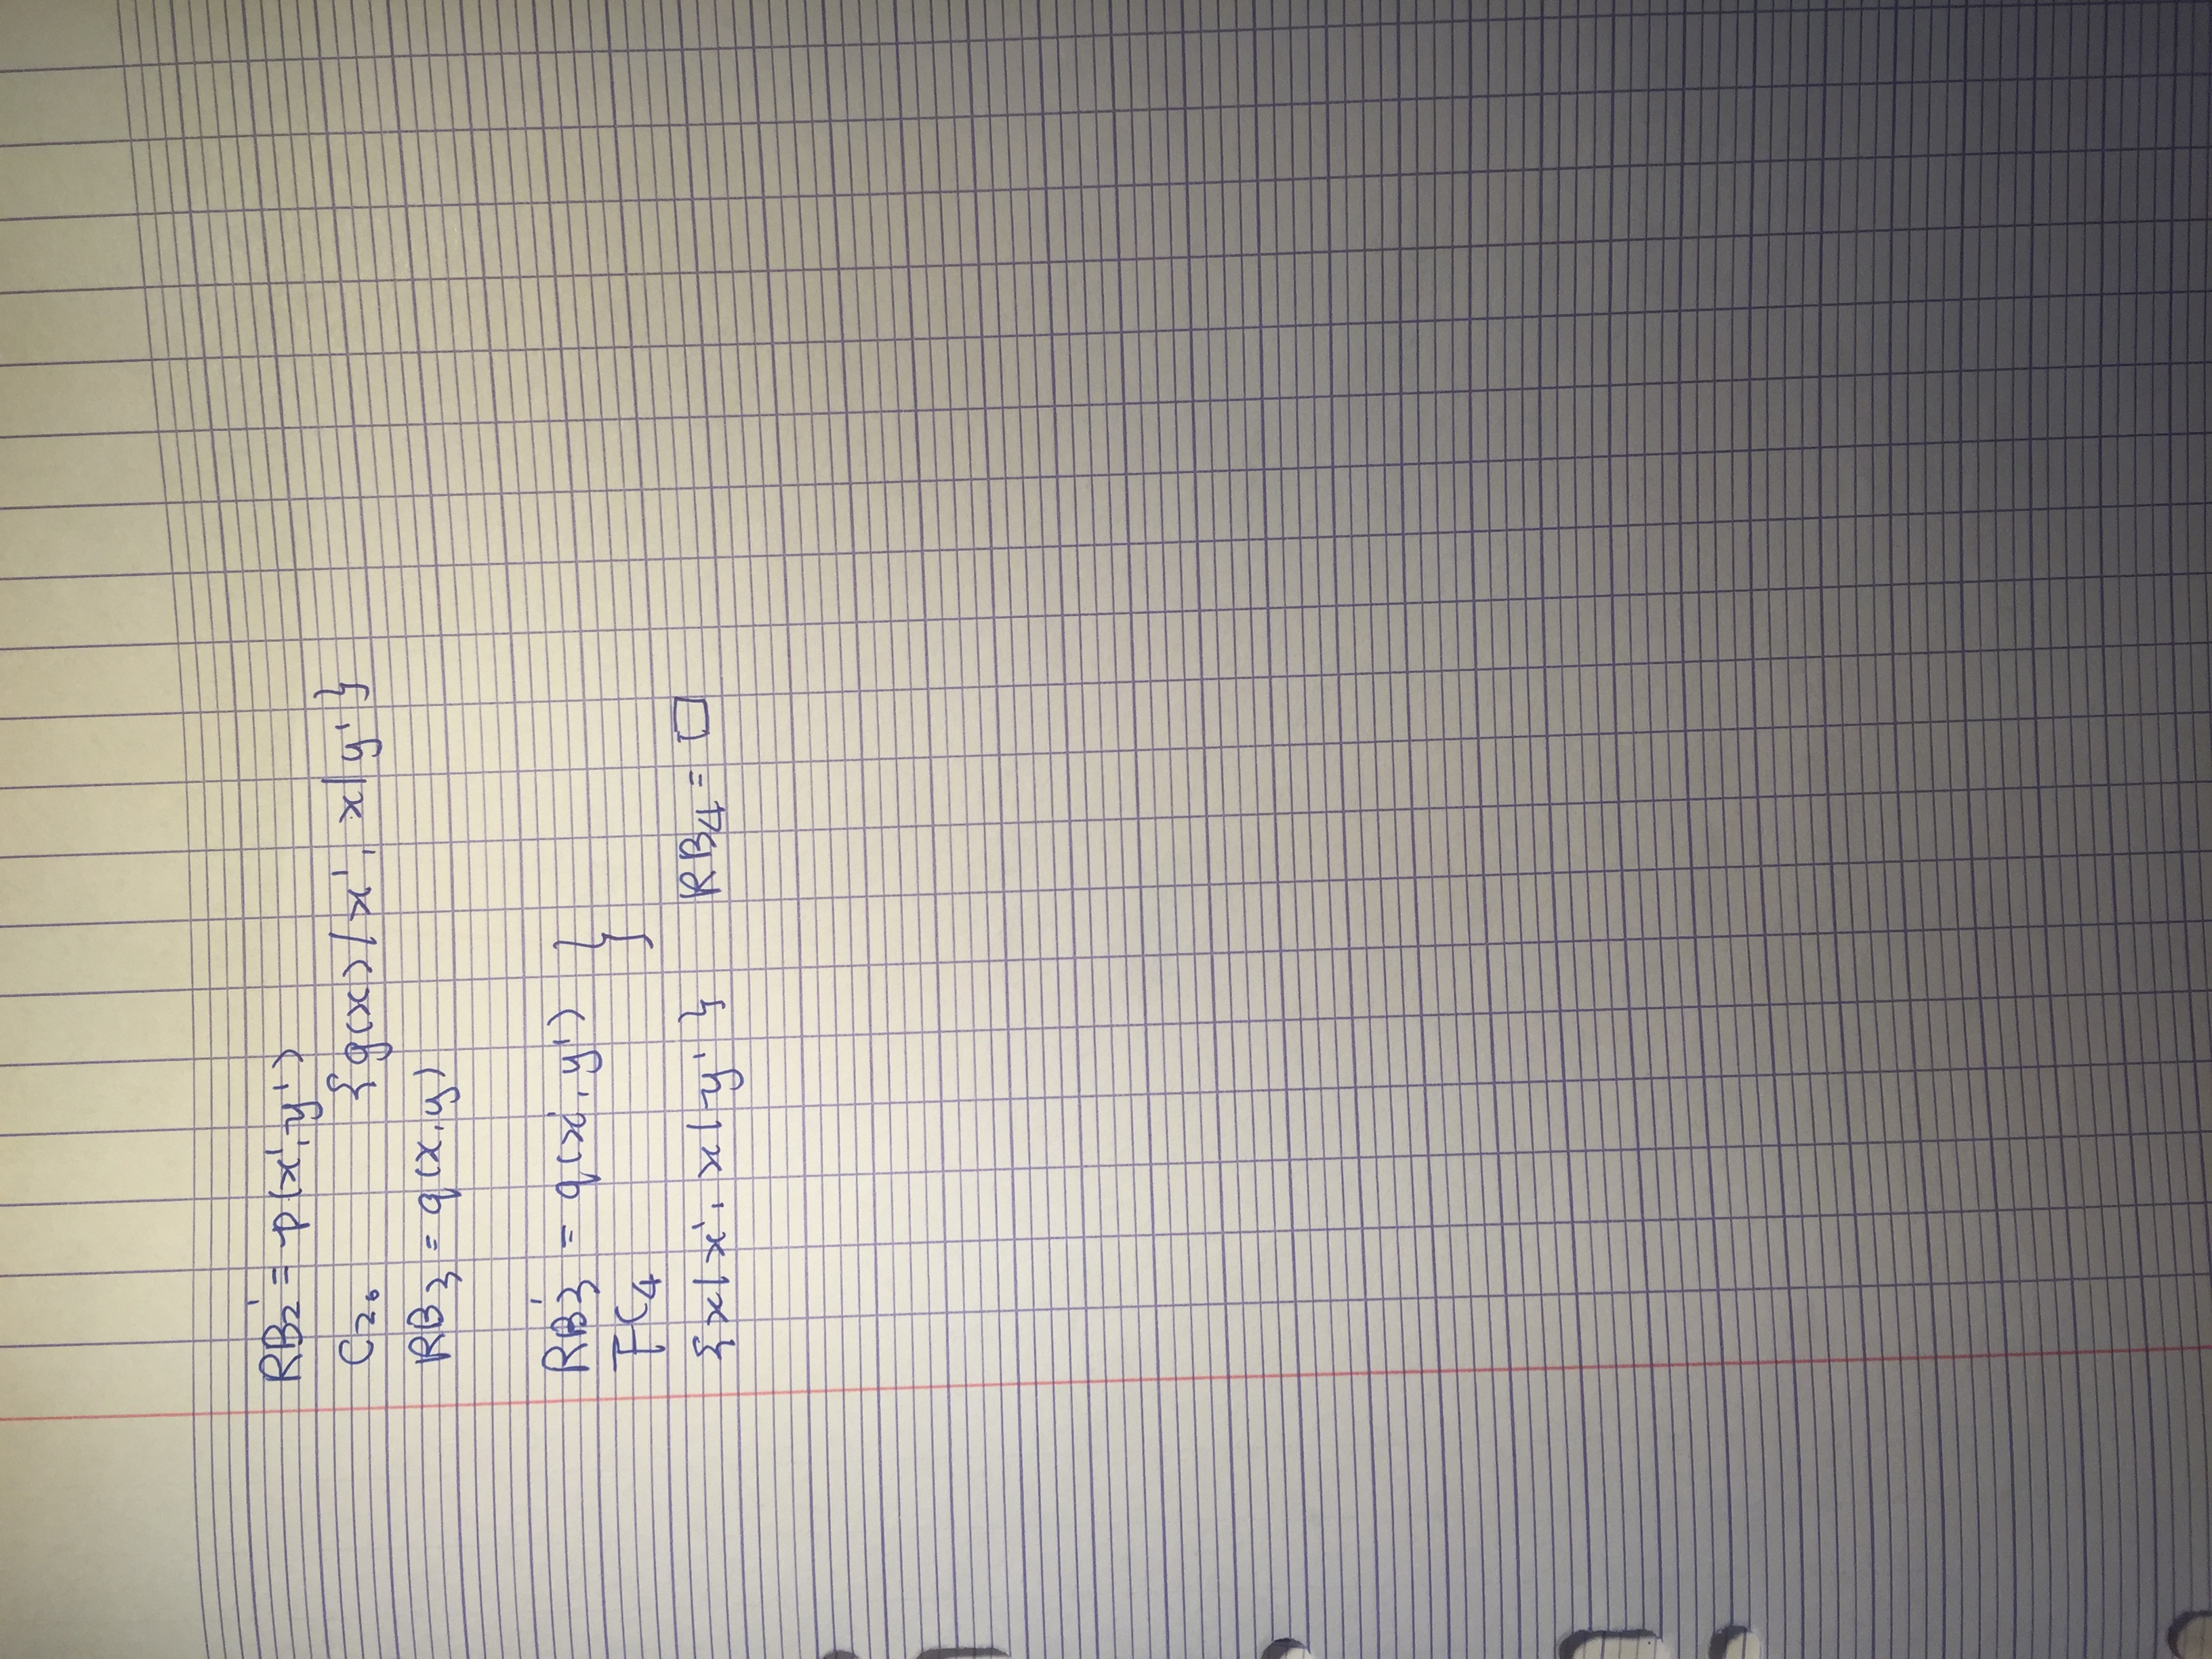 RB₂' = p(x', y')
C₂. {g(x)/x', x/y'}
RB₃ = q(x, y)
RB₃' = q(x', y') }
FC₄
{x/x', x/y'} RB₄ = □